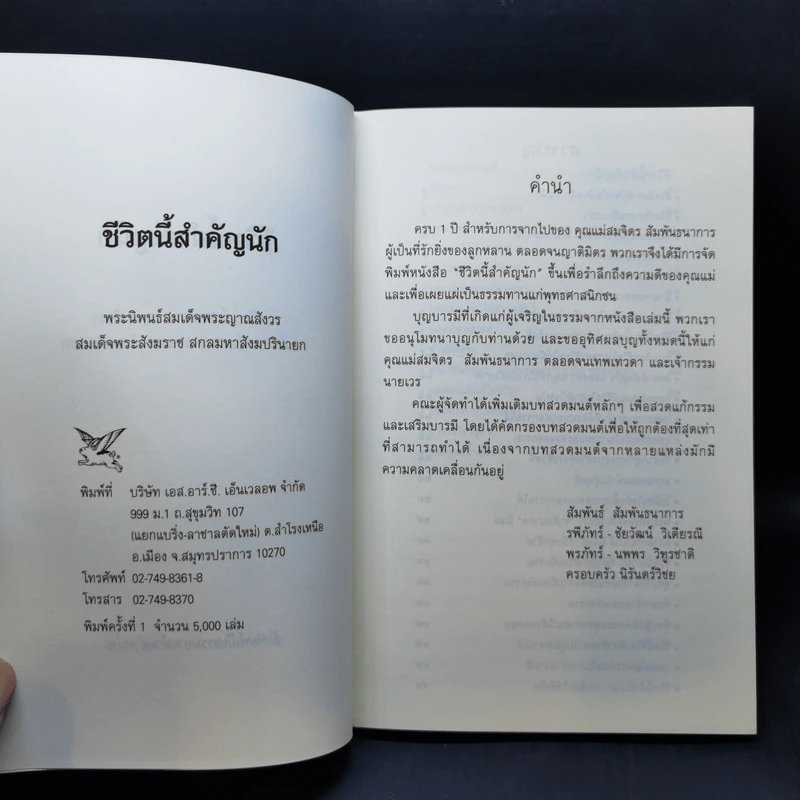 ชีวิตนี้สำคัญนัก
พระนิพนธ์สมเด็จพระญาณสังวร
สมเด็จพระสังฆราช สกลมหาสังฆปรินายก
พิมพ์ที่ บริษัท เอส.อาร์.ซี. เอ็นเวลอพ จำกัด
999 ม.1 ถ.สุขุมวิท 107
(แยกแบริ่ง-ลาซาลตัดใหม่) ต.สำโรงเหนือ
อ.เมือง จ.สมุทรปราการ 10270
โทรศัพท์ 02-749-8361-8
โทรสาร 02-749-8370
พิมพ์ครั้งที่ 1 จำนวน 5,000 เล่ม
คำนำ
ครบ 1 ปี สำหรับการจากไปของ คุณแม่สมจิตร สัมพันธนาการ
ผู้เป็นที่รักยิ่งของลูกหลาน ตลอดจนญาติมิตร พวกเราจึงได้มีการจัด
พิมพ์หนังสือ "ชีวิตนี้สำคัญนัก" ขึ้นเพื่อรำลึกถึงความดีของคุณแม่
และเพื่อเผยแผ่เป็นธรรมทานแก่พุทธศาสนิกชน
บุญบารมีที่เกิดแก่ผู้เจริญในธรรมจากหนังสือเล่มนี้ พวกเรา
ขออนุโมทนาบุญกับท่านด้วย และขออุทิศผลบุญทั้งหมดนี้ให้แก่
คุณแม่สมจิตร สัมพันธนาการ ตลอดจนเทพเทวดา และเจ้ากรรม
นายเวร
คณะผู้จัดทำได้เพิ่มเติมบทสวดมนต์หลักๆ เพื่อสวดแก้กรรม
และเสริมบารมี โดยได้คัดกรองบทสวดมนต์เพื่อให้ถูกต้องที่สุดเท่า
ที่สามารถทำได้ เนื่องจากบทสวดมนต์จากหลายแหล่งมักมี
ความคลาดเคลื่อนกันอยู่
สัมพันธ์ สัมพันธนาการ
รพีภัทร์ - ชัยวัฒน์ วิเตียรณี
พรภัทร์ - นพพร วิทูรชาติ
ครอบครัว นิรันดร์วิชย